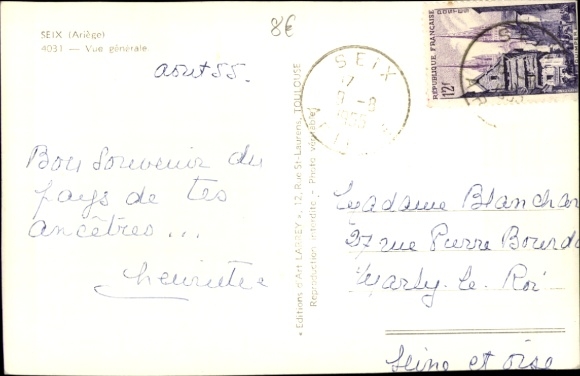 SEIX (Ariège)
4031 — Vue générale
8€
août 55.
Bon souvenir du
pays de tes
ancêtres...
Henriette
• Editions d'Art LARREY •, 12, Rue St-Laurens, TOULOUSE
Reproduction interdite - Photo véritable
SEIX
9-8
1955
REPUBLIQUE FRANÇAISE
POSTES
12F
Madame Blanchar
27 rue Pierre Bourda
Marly-le-Roi
Seine et Oise